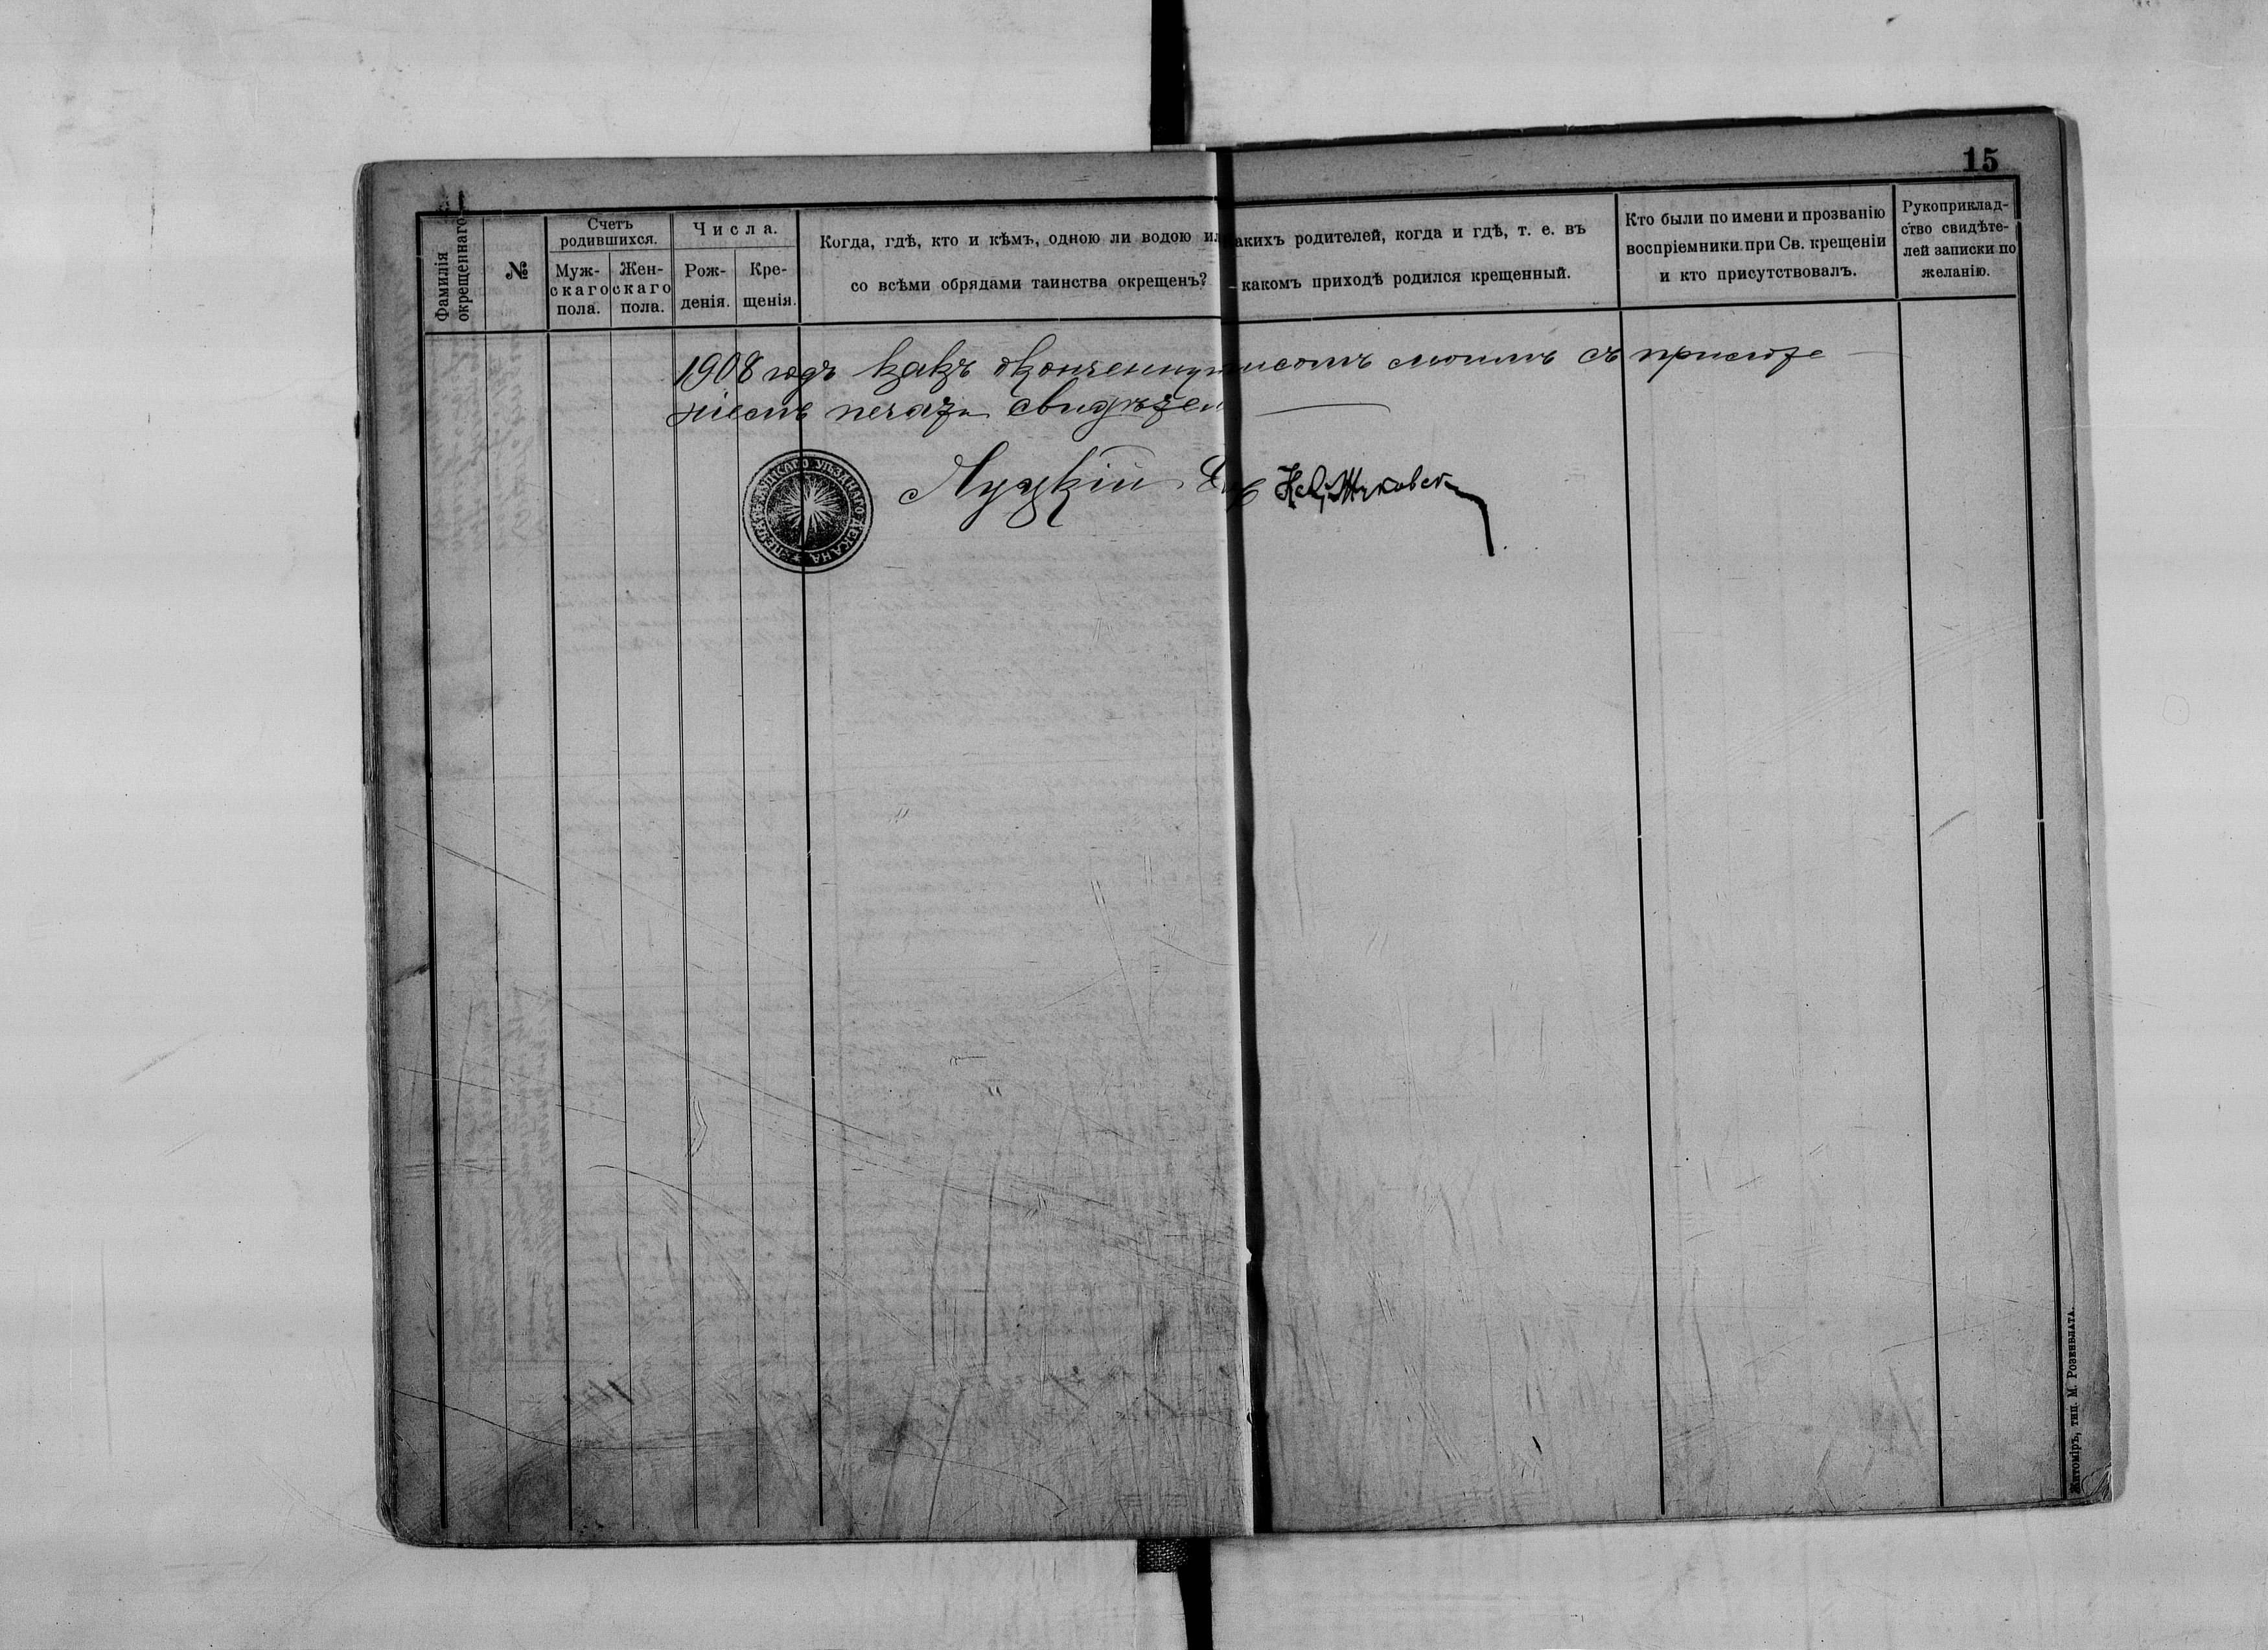 15
Фамилія окрещеннаго
№
Счетъ родившихся.
Муж-
скаго
пола.
Жен-
скаго
пола.
Числа.
Рож-
денія.
Кре-
щенія.
Когда, гдѣ, кто и кѣмъ, одною ли водою ил
со всѣми обрядами таинства окрещенъ?
акихъ родителей, когда и гдѣ, т. е. въ
какомъ приходѣ родился крещенный.
Кто были по имени и прозванію
воспріемники при Св. крещеніи
и кто присутствовалъ.
Рукоприклад-
ство свидѣте-
лей записки по
желанію.
1908 годъ какъ оконченную моимъ съ приложе
ніемъ печати свидѣтел
Луцкій
ПЕЧАТЬ ЛУЦКАГО УѢЗДНАГО ДЕКАНА
Житоміръ, тип. М. Розенблата.